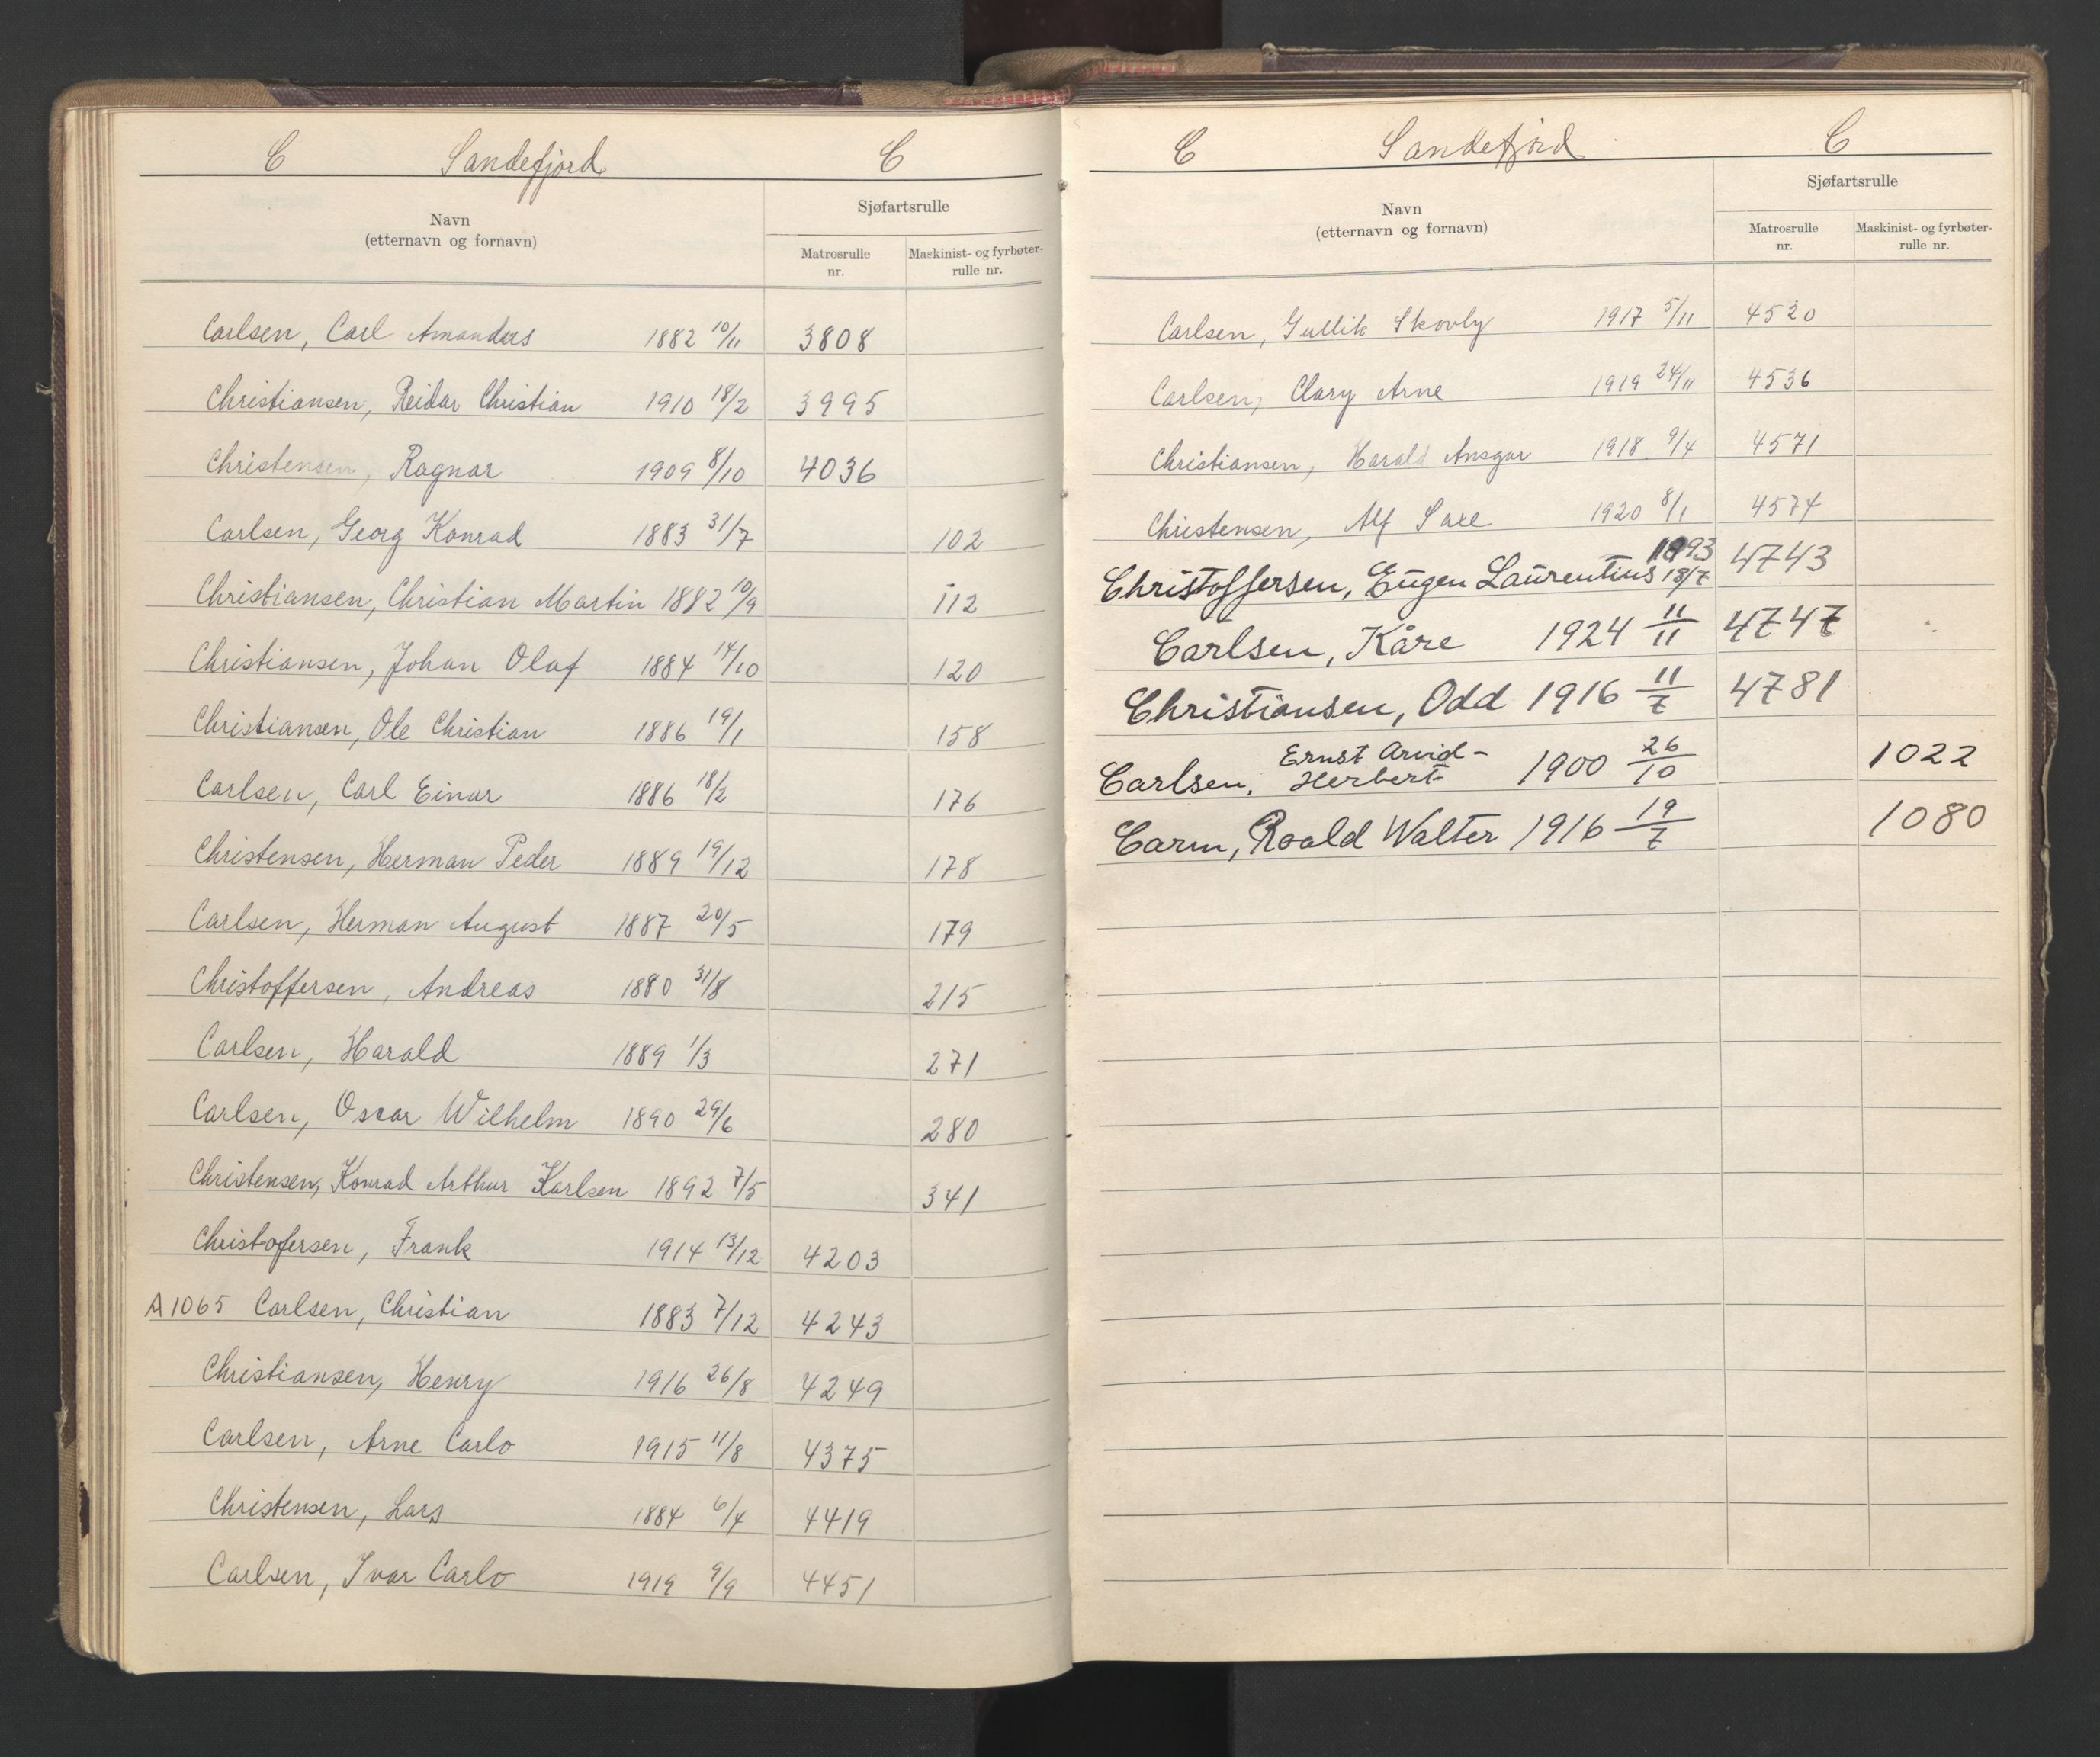 C Sandefjord C
Navn
(etternavn og fornavn)
Sjøfartsrulle
Matrosrulle
nr.
Maskinist- og fyrbøter-
rulle nr.
Carlsen, Carl Amandus 1882 10/11 3808
Christiansen, Reidar Christian 1910 18/2 3995
Christensen, Ragnar 1909 8/10 4036
Carlsen, Georg Konrad 1883 31/7 102
Christiansen, Christian Martin 1882 10/9 112
Christiansen, Johan Olaf 1884 14/10 120
Christiansen, Ole Christian 1886 19/1 158
Carlsen, Carl Einar 1886 18/2 176
Christensen, Herman Peder 1889 19/12 178
Carlsen, Herman August 1887 20/5 179
Christoffersen, Andreas 1880 31/8 215
Carlsen, Harald 1889 1/3 271
Carlsen, Oscar Wilhelm 1890 29/6 280
Christensen, Konrad Arthur Karlsen 1892 7/5 341
Christofersen, Frank 1914 13/12 4203
A 1065 Carlsen, Christian 1883 7/12 4243
Christiansen, Henry 1916 26/8 4249
Carlsen, Arne Carlo 1915 11/8 4375
Christensen, Lars 1884 6/4 4419
Carlsen, Ivar Carlo 1919 9/9 4451
C Sandefjord C
Navn
(etternavn og fornavn)
Sjøfartsrulle
Matrosrulle
nr.
Maskinist- og fyrbøter-
rulle nr.
Carlsen, Gullik Skovly 1917 5/11 4520
Carlsen, Clary Arne 1919 24/11 4536
Christiansen, Harald Ansgar 1918 9/4 4571
Christensen, Alf 1920 8/1 4574
Christoffersen, Eugen Laurentius 1893 18/7 4743
Carlsen, Kåre 1924 11/11 4747
Christiansen, Odd 1916 11/7 4781
Carlsen, Ernst Arvid-
Herbert 1900 26/10 1022
Carm, Roald Walter 1916 19/7 1080